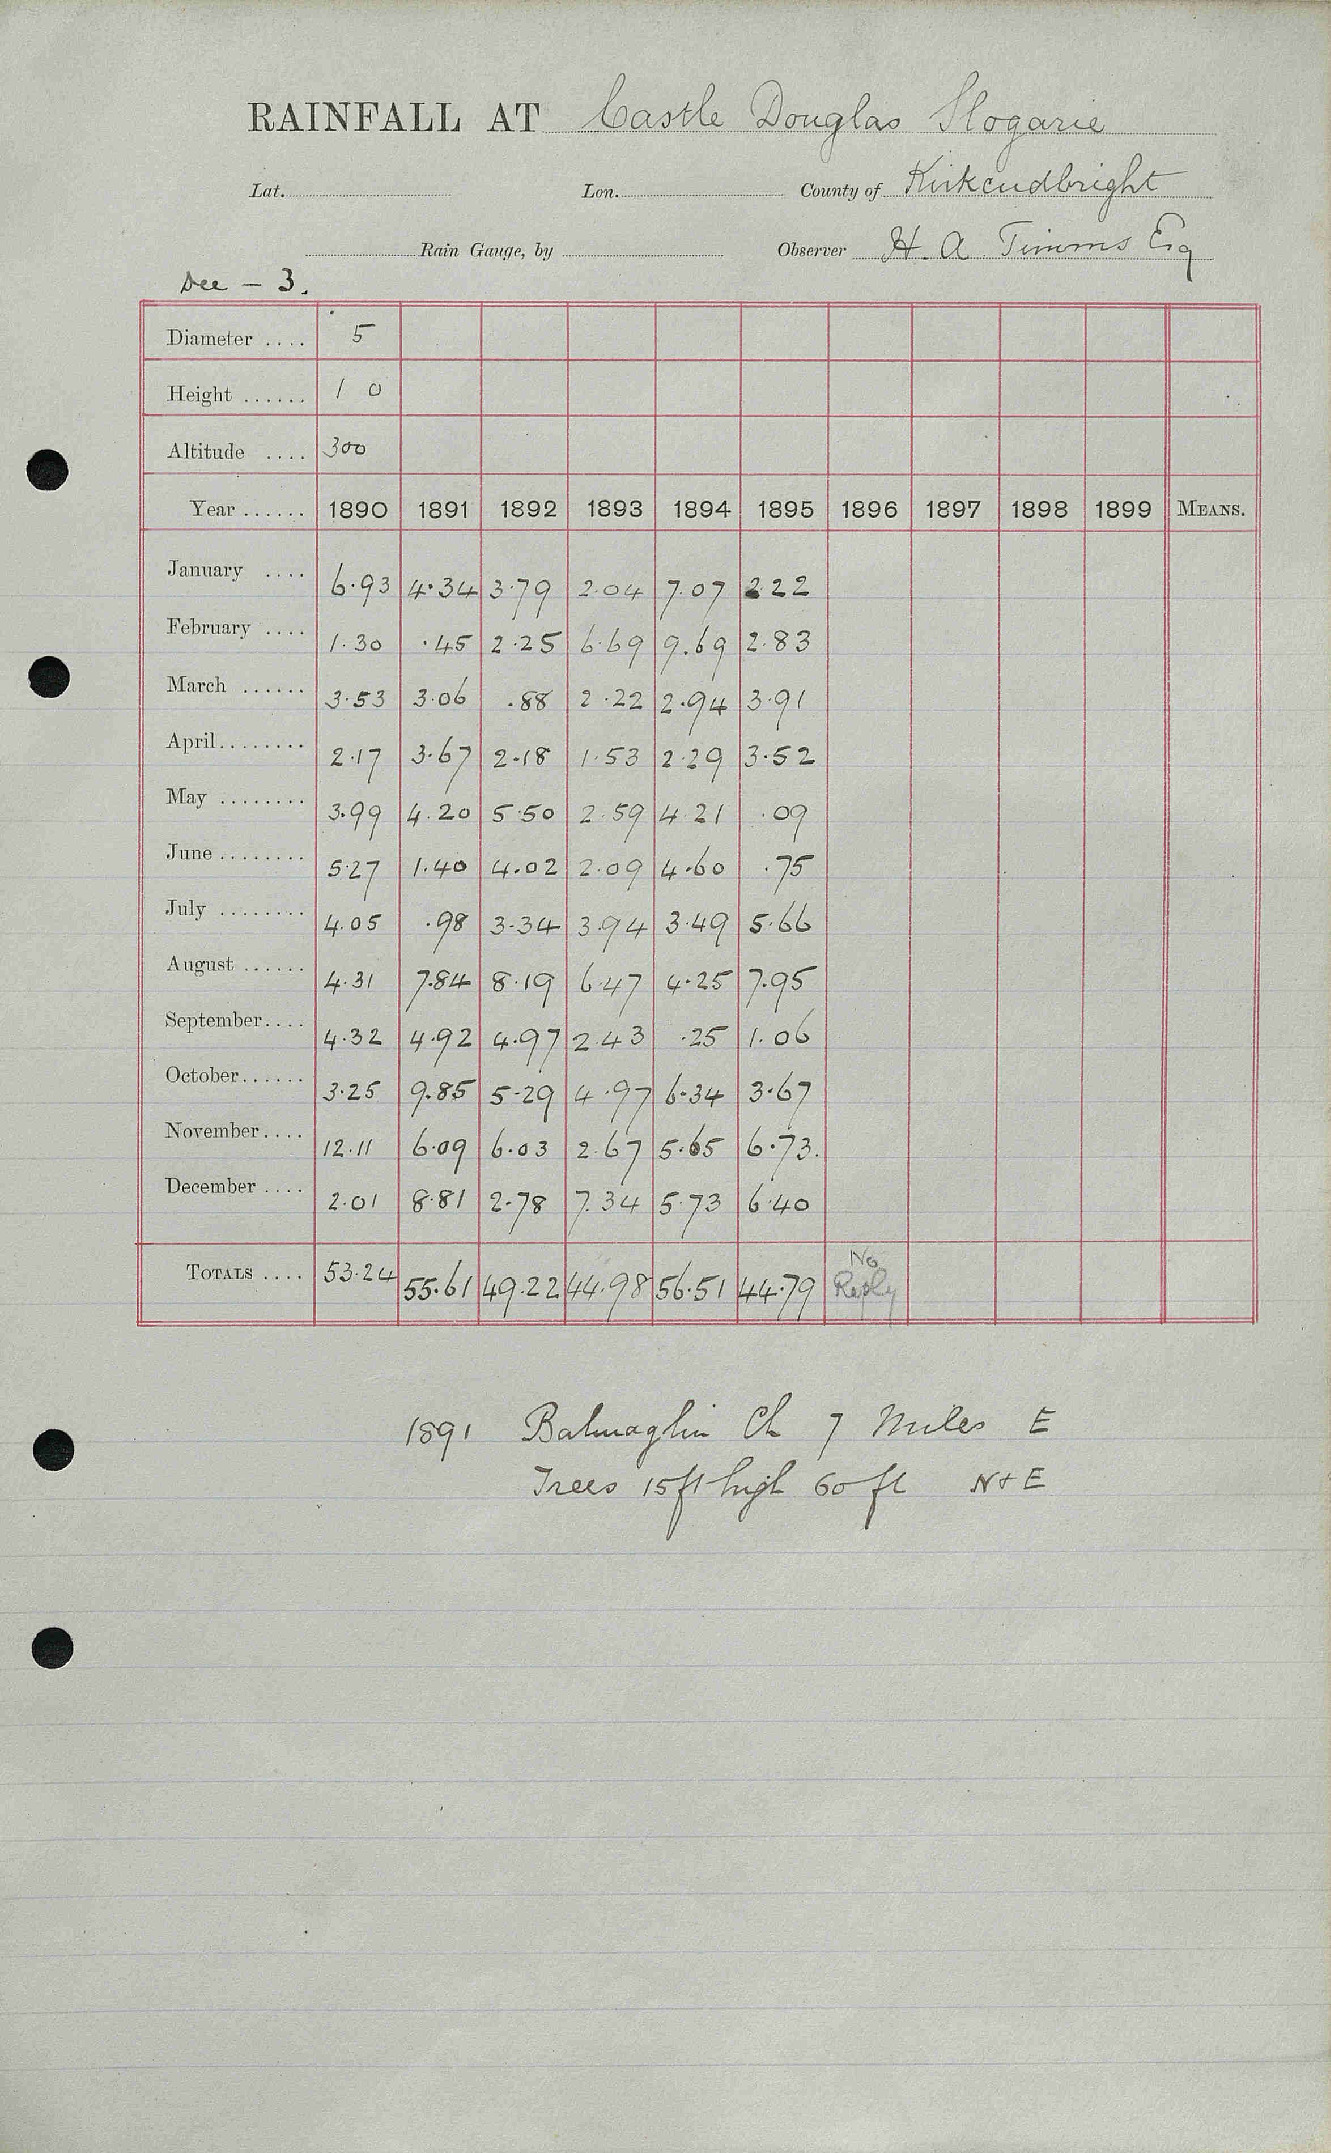 RAINFALL AT Castle Douglas Slogarie
Lat. Lon. County of Kirkcudbright
Rain Gauge, by Observer H. A Timms Esq
Dee - 3.
Diameter .... 5
Height ...... 1 0
Altitude .... 300
Year ...... 1890 1891 1892 1893 1894 1895 1896 1897 1898 1899 MEANS.
January .... 6.93 4.34 3.79 2.04 7.07 2.22
February .... 1.30 .45 2.25 6.69 9.69 2.83
March ...... 3.53 3.06 .88 2.22 2.94 3.91
April........ 2.17 3.67 2.18 1.53 2.29 3.52
May ........ 3.99 4.20 5.50 2.59 4.21 .09
June ........ 5.27 1.40 4.02 2.09 4.60 .75
July ........ 4.05 .98 3.34 3.94 3.49 5.66
August ...... 4.31 7.84 8.19 6.47 4.25 7.95
September.... 4.32 4.92 4.97 2.43 .25 1.06
October...... 3.25 9.85 5.29 4.97 6.34 3.67
November.... 12.11 6.09 6.03 2.67 5.65 6.73.
December .... 2.01 8.81 2.78 7.34 5.73 6.40
TOTALS .... 53.24 55.61 49.22 44.98 56.51 44.79 No Reply
1891 Balmaghin Ch 7 Miles E
Trees 15 ft high 60 ft N+E